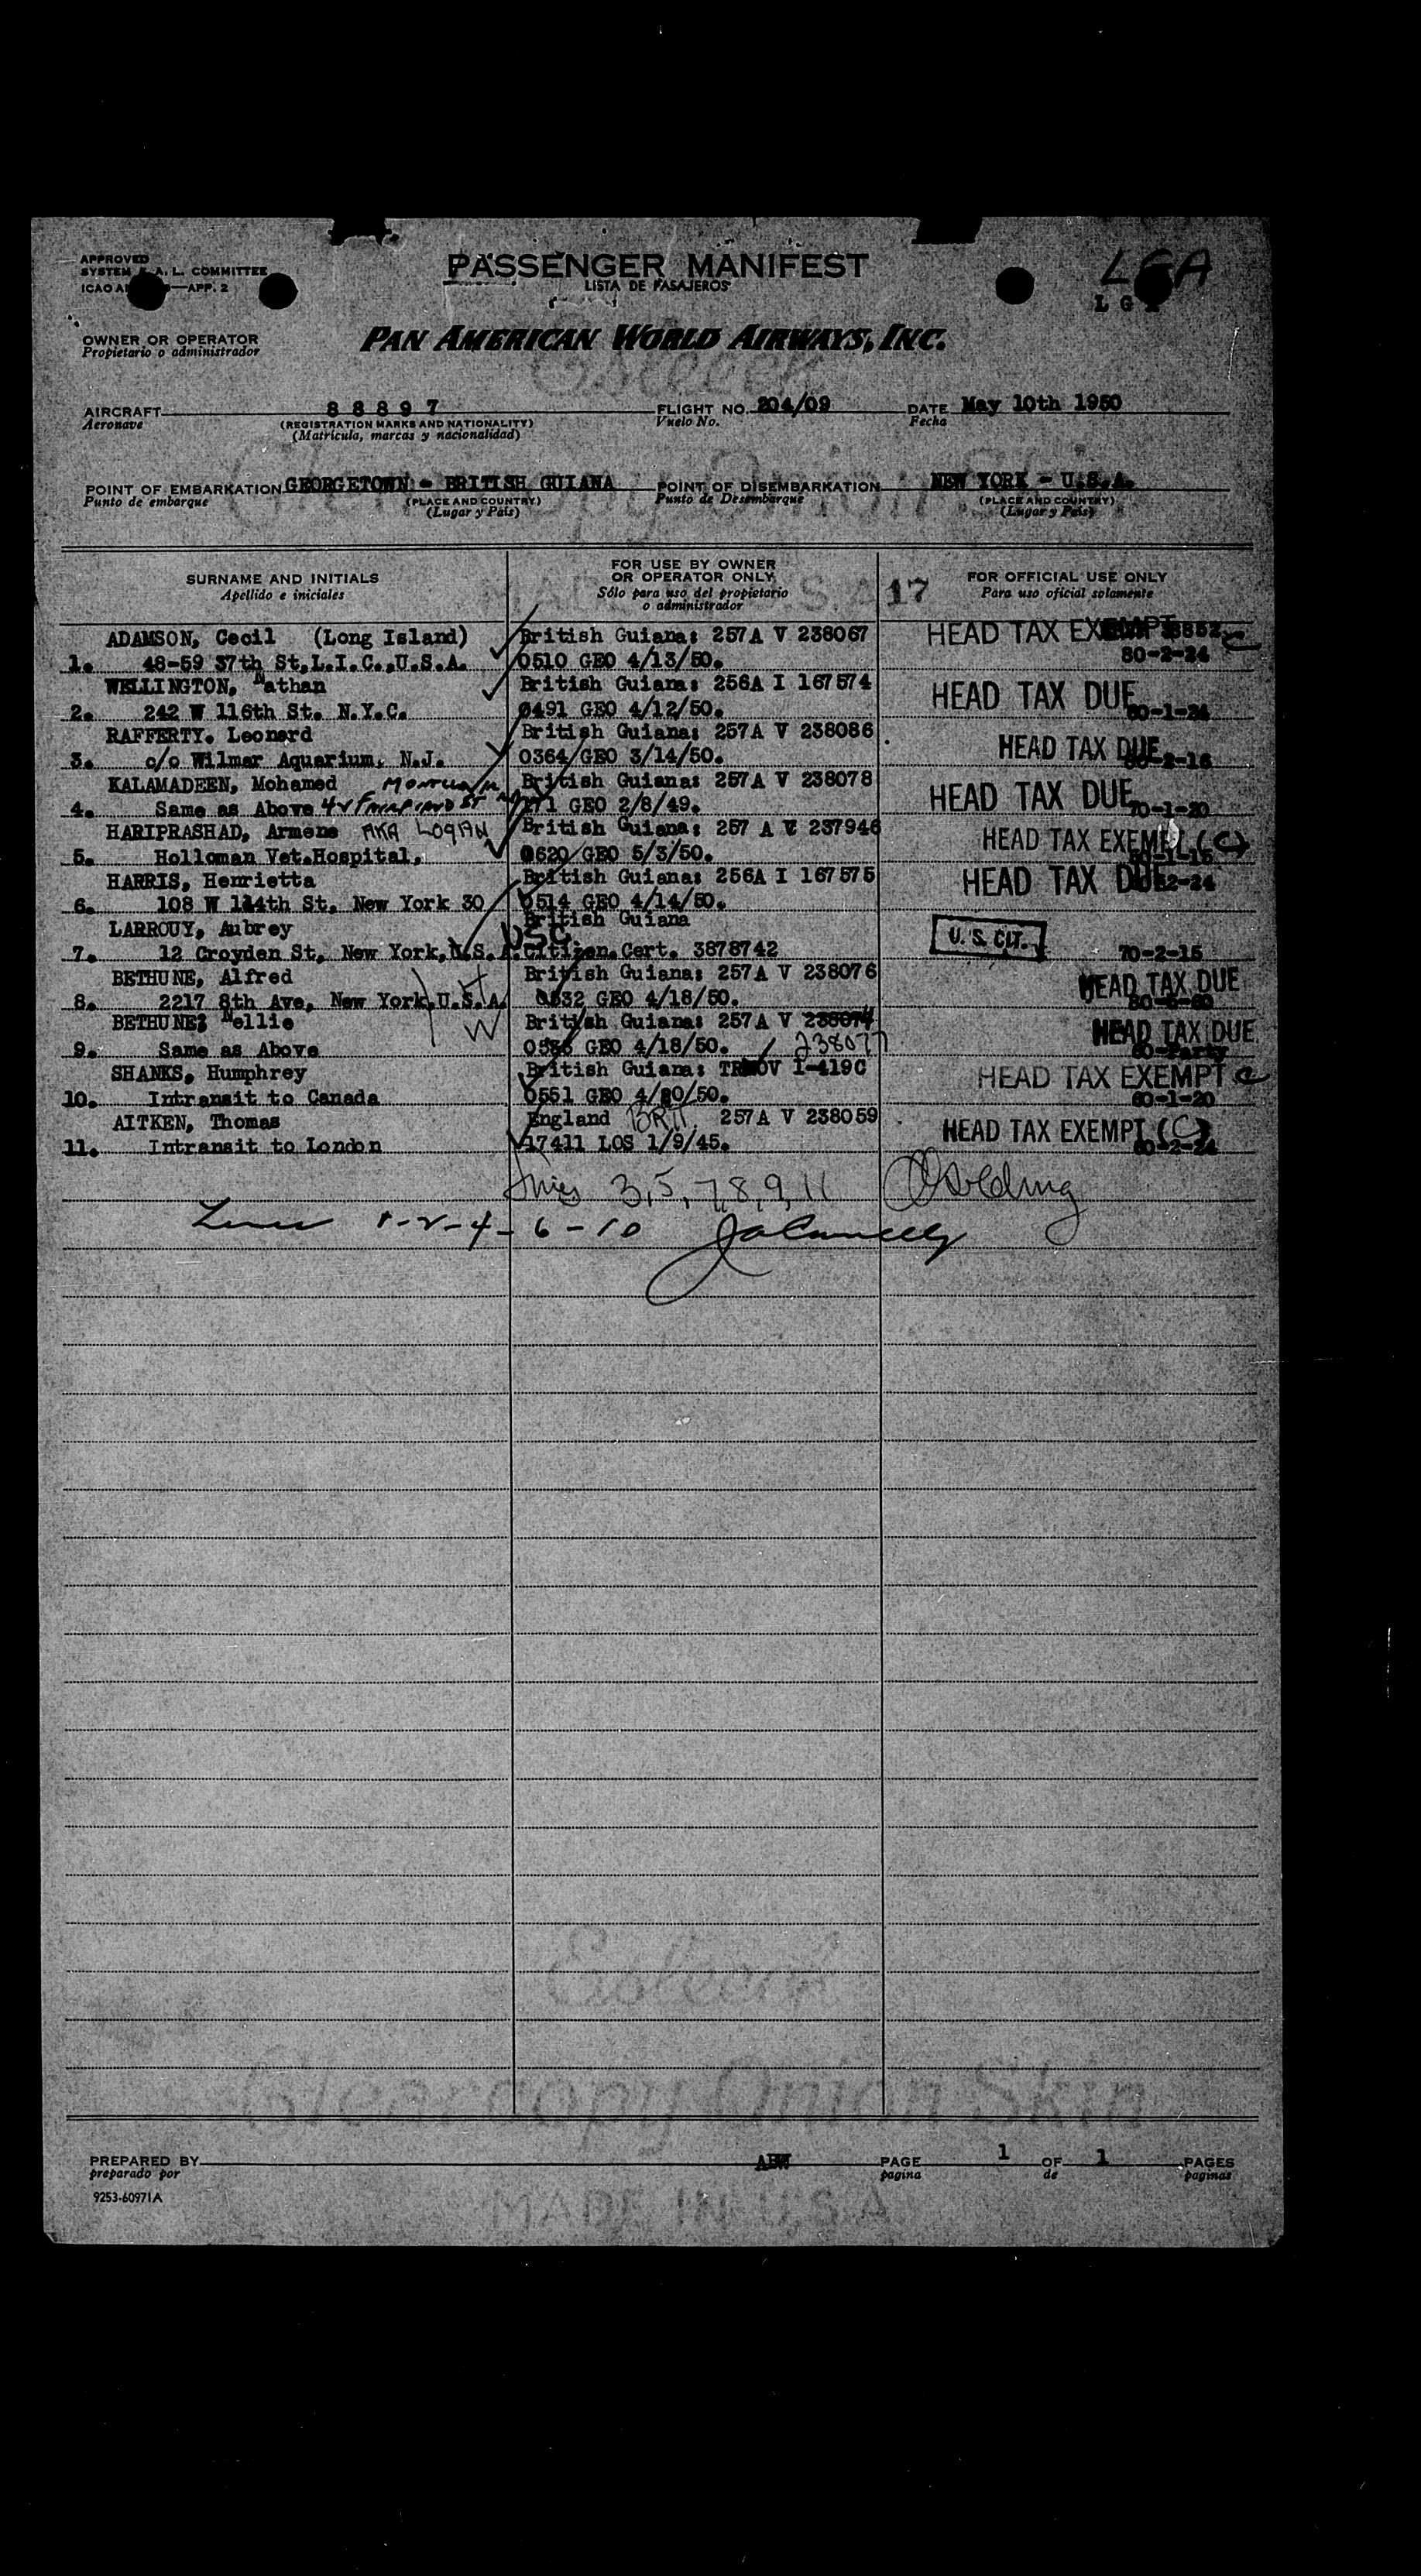 APPROVED
SYSTEM A. L. COMMITTEE
ICAO —APP. 2
PASSENGER MANIFEST
LISTA DE PASAJEROS
LGA
L G
OWNER OR OPERATOR
Propietario o administrador
PAN AMERICAN WORLD AIRWAYS, INC.
AIRCRAFT 88897 FLIGHT NO. 204/09 DATE May 10th 1950
Aeronave (REGISTRATION MARKS AND NATIONALITY) Vuelo No. Fecha
(Matrícula, marcas y nacionalidad)
POINT OF EMBARKATION GEORGETOWN - BRITISH GUIANA POINT OF DISEMBARKATION NEW YORK - U.S.A.
Punto de embarque (PLACE AND COUNTRY) Punto de Desembarque (PLACE AND COUNTRY)
(Lugar y País) (Lugar y País)
SURNAME AND INITIALS FOR USE BY OWNER OR OPERATOR ONLY 17 FOR OFFICIAL USE ONLY
Apellido e iniciales Sólo para uso del propietario o administrador Para uso oficial solamente
ADAMSON, Cecil (Long Island) British Guiana: 257A V 238067 HEAD TAX EXEMPT
1. 48-59 37th St,L.I.C.,U.S.A. 0510 GEO 4/13/50. 80-2-24
WELLINGTON, Nathan British Guiana: 256A I 167574 HEAD TAX DUE
2. 242 W 116th St. N.Y.C. 0491 GEO 4/12/50.
RAFFERTY. Leonard British Guiana: 257A V 238086 HEAD TAX DUE
3. c/o Wilmar Aquarium, N.J. 0364/GEO 3/14/50.
KALAMADEEN, Mohamed British Guiana: 257A V 238078 HEAD TAX DUE
4. Same as Above GEO 2/8/49. 70-1-20
HARIPRASHAD, Armene AKA LOGAN British Guiana: 257 A V 237946 HEAD TAX EXEMPT (C)
5. Holloman Vet.Hospital, 0620/GEO 5/3/50.
HARRIS, Henrietta British Guiana: 256A I 167575 HEAD TAX DUE
6. 108 W 114th St, New York 30 0514 GEO 4/14/50.
LARROUY, Aubrey British Guiana U.S. CIT.
7. 12 Croyden St, New York, U.S.A. USC Citizen.Cert. 3878742 70-2-15
BETHUNE, Alfred H British Guiana: 257A V 238076 HEAD TAX DUE
8. 2217 8th Ave, New York,U.S.A. 0532 GEO 4/18/50.
BETHUNE; Nellie W British Guiana: 257A V 238074 HEAD TAX DUE
9. Same as Above GEO 4/18/50. / 238077 60-Party
SHANKS, Humphrey British Guiana: I-419C HEAD TAX EXEMPT C
10. Intransit to Canada 0551 GEO 4/20/50. 60-1-20
AITKEN, Thomas England BRIT. 257A V 238059 HEAD TAX EXEMPT (C)
11. Intransit to London 17411 LOS 1/9/45.
3,5,7,8,9,11
1-2-4-6-10
Eaton's
Clearcopy Onion Skin
PREPARED BY ABW PAGE 1 OF 1 PAGES
preparado por pagina de paginas
9253-60971A
MADE IN U.S.A.